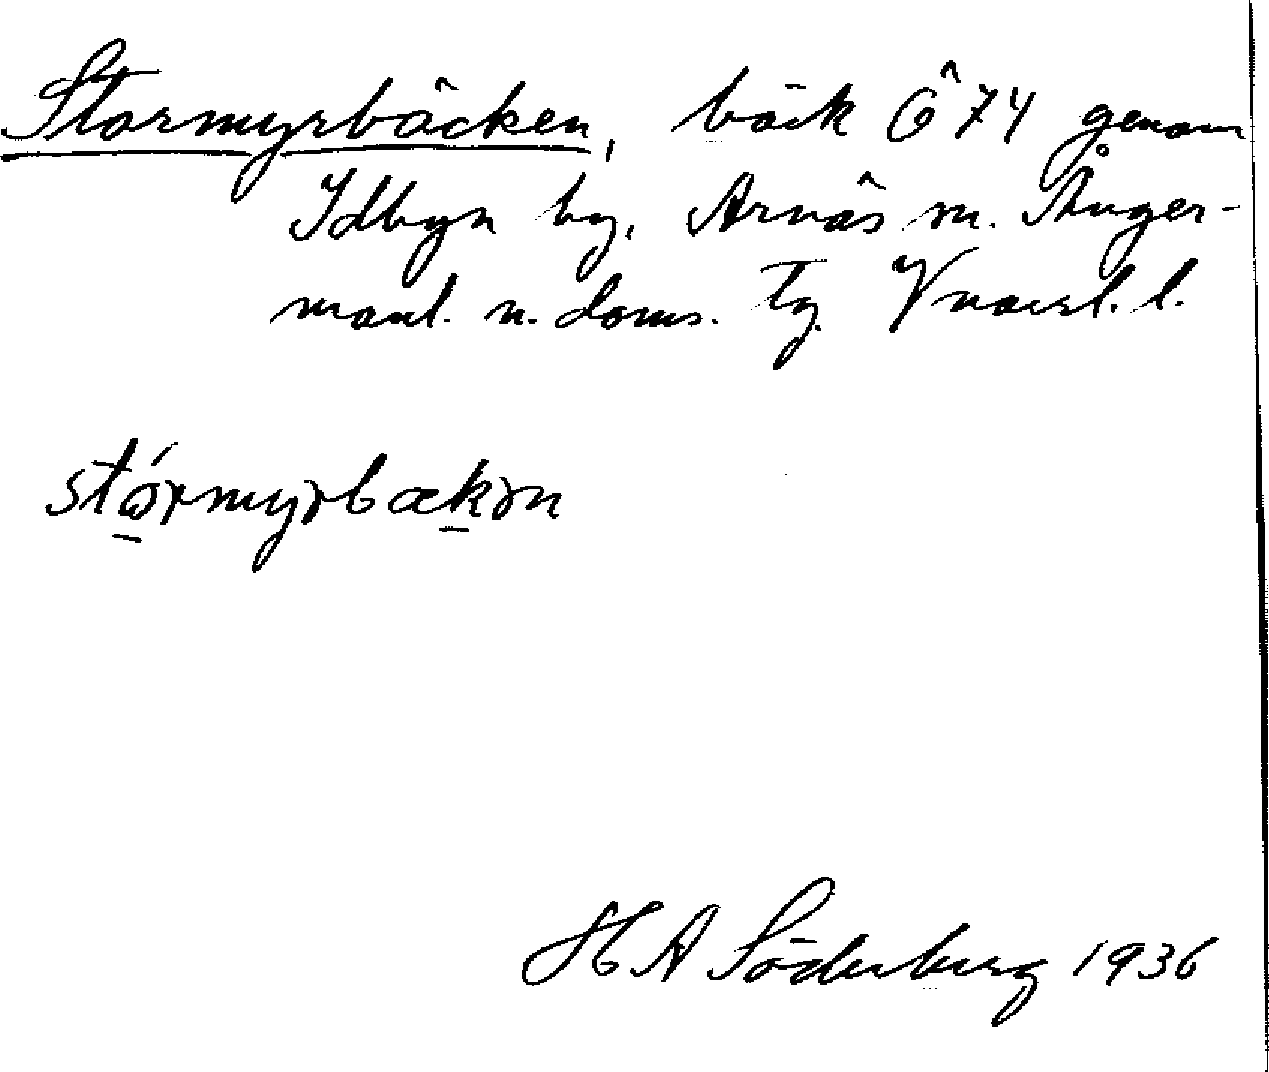 Stormyrbäcken, bäck Ö 74 genom
Idbyn by, Arnäs sn. Ånger-
manl. n. doms. tg. V norrl. l.
stórmyrbækən
H A Söderberg 1936